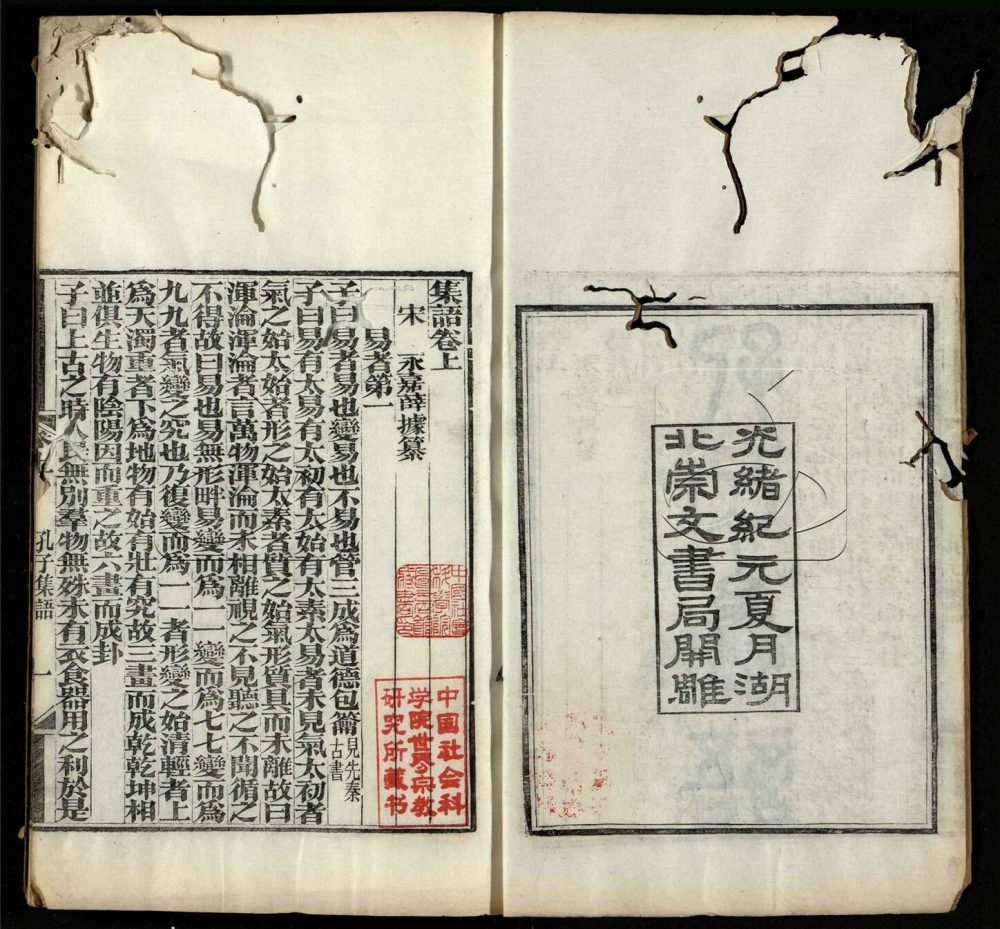 光緒紀元夏月湖
北崇文書局開雕
集語卷上
宋 永嘉薛據纂
易者第一
子曰易者易也變易也不易也管三成為道德包籥見先秦古書
子曰易有太易有太初有太始有太素太易者未見氣太初者
氣之始太始者形之始太素者質之始氣形質具而未離故曰
渾淪渾淪者言萬物渾淪而未相離視之不見聽之不聞循之
不得故曰易也易無形畔易變而為一一變而為七七變而為
九九者氣變之究也乃復變而為一一者形變之始清輕者上
為天濁重者下為地物有始有壯有究故三畫而成乾乾坤相
並俱生物有陰陽因而重之故六畫而成卦
子曰上古之時人民無別羣物無殊未有衣食器用之利於是
孔子集語
一
中国社会科
学院世界宗教
研究所藏书